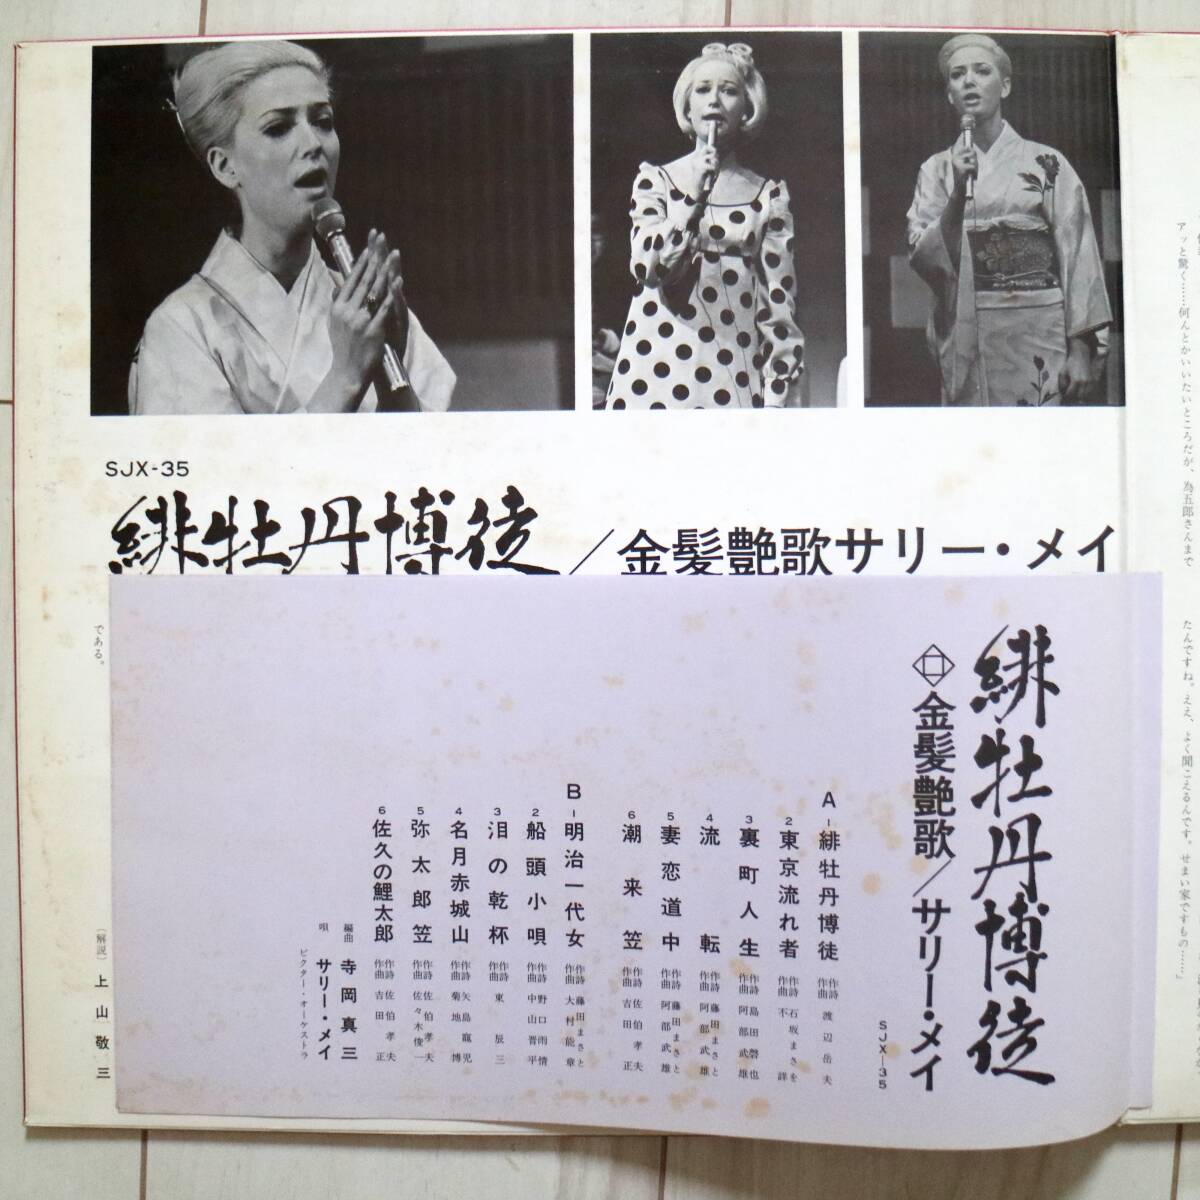 SJX-35
緋牡丹博徒／金髪艶歌サリー・メイ
アッと驚く……何んとかいいたいところだが、為五郎さんまで
たんですね。ええ、よく聞こえるんです。せまい家ですもの……」
である。
〔解説〕上山敬三
緋牡丹博徒
金髪艶歌／サリー・メイ
SJX—35
A-1 緋牡丹博徒 作詩 作曲 渡辺岳夫
2 東京流れ者 作詩 石坂まさを 作曲 不詳
3 裏町人生 作詩 島田磬也 作曲 阿部武雄
4 流転 作詩 藤田まさと 作曲 阿部武雄
5 妻恋道中 作詩 藤田まさと 作曲 阿部武雄
6 潮来笠 作詩 佐伯孝夫 作曲 吉田正
B-1 明治一代女 作詩 藤田まさと 作曲 大村能章
2 船頭小唄 作詩 野口雨情 作曲 中山晋平
3 泪の乾杯 作詩 作曲 東辰三
4 名月赤城山 作詩 矢島寵児 作曲 菊地博
5 弥太郎笠 作詩 佐伯孝夫 作曲 佐々木俊一
6 佐久の鯉太郎 作詩 佐伯孝夫 作曲 吉田正
編曲 寺岡真三
唄 サリー・メイ
ビクター・オーケストラ